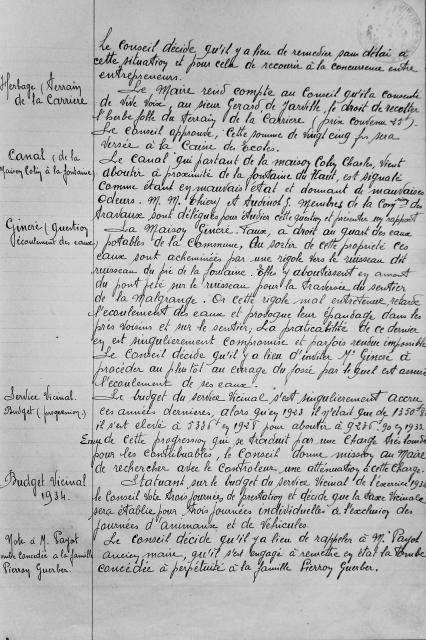 Le Conseil décide qu'il y a lieu de remedier sans délai à
cette situation et pour cela de recourir à la concurence entre
entrepreneurs.
Herbage (terrain
de la Carrière
Le Maire rend compte au Conseil qu'il a consenti
de vive voix, au sieur Gérard, de Jarville, le droit de récolter
l'herbe folle du terrain de la Carrière (prix convenu 25f)
Le Conseil approuve, cette somme de vingt cinq frs sera
versée à la Caisse des Ecoles.
Canal (de la
Maison Coly à la fontaine)
Le Canal qui partant de la maison Coly Charles, vient
aboutir à proximité de la fontaine du Haut, est signalé
comme étant en mauvais état et donnant de mauvaises
odeurs. M. M. Thiery et Audinot G. Membres de la Con
travaux sont délégués pour étudier cette question et présenter un rapport
Gincré (question
écoulement des eaux)
La Maison Gincré Faux, a droit au quart des eaux
potables de la Commune. Au sortir de cette propriété ces
eaux sont acheminées par une rigole vers le ruisseau dit
ruisseau du pié de la fontaine. Elles y aboutissent en amont
du pont jeté sur le ruisseau pour la traversée du sentier
de la Malgrange. Or cette rigole mal entretenue, retarde
l'écoulement des eaux et provoque leur épandage dans les
prés voisins et sur le sentier, La praticabilité de ce dernier
en est singulièrement compromise et parfois rendue impossible
Le Conseil décide qu'il y a lieu d'inviter Mr Gincré à
procéder au plutôt au curage du fossé par lequel est assuré
l'écoulement de ses eaux.
Service Vicinal.
Budget (progression)
Le budget du service Vicinal s'est singulièrement accru
ces années dernières, alors qu'en 1923 il n'était que de 1350
il s'est élevé à 5336f en 1928 pour aboutir à 9286f90 en 1933.
Emu de cette progression qui se traduit par une charge très lourde
pour les contribuables, le Conseil donne mission au Maire
de rechercher avec le Controleur, une atténuation à cette Charge.
Budget Vicinal
1934.
Statuant sur le budget du service Vicinal de l'exercice 1934
le Conseil Vote trois journées de prestation et décide que la taxe Vicinale
sera établie pour trois journées individuelles à l'exclusion des
journées d'animaux et de véhicules.
Note à M. Payot
tombe concédée à la famille
Pierroy Guerber.
Le Conseil décide qu'il y a lieu de rappeler à Mr Payot
ancien maire, qu'il s'est engagé à remettre en état la tombe
concédée à perpétuité à la famille Pierroy Guerber.